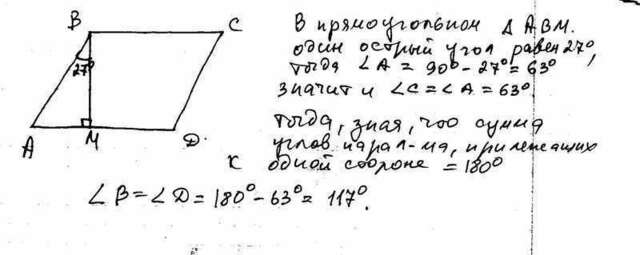 B
C
27°
A
M
D.
В прямоугольном Δ ABM.
один острый угол равен 27°,
тогда ∠A = 90° - 27° = 63°
значит и ∠C = ∠A = 63°.
тогда, зная, что сумма
углов парал-ма, прилежащих
к одной стороне = 180°
∠B = ∠D = 180° - 63° = 117°.